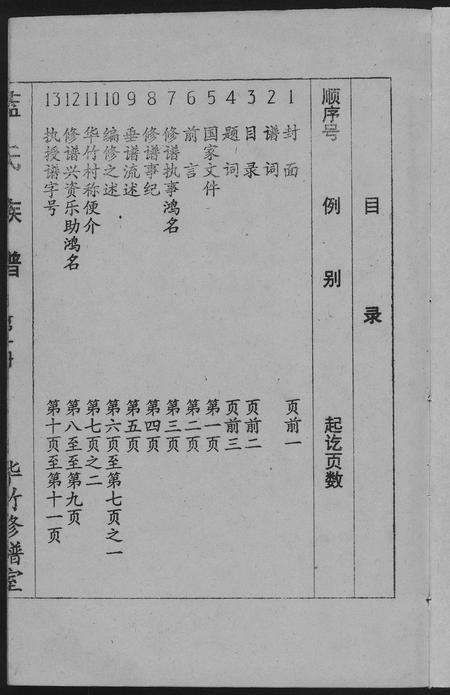 目录
顺序号 例别 起讫页数
1 封面 页前一
2 谱词
3 目录 页前二
4 题词 页前三
5 国家文件 第一页
6 前言 第二页
7 修谱执事鸿名 第三页
8 修谱事纪 第四页
9 垂谱流述 第五页
10 编修之述 第六页至第七页之一
11 华竹村称便介 第七页之二
12 修谱兴资乐助鸿名 第八至至第九页
13 执授谱字号 第十页至第十一页
氏族谱 华竹修谱室